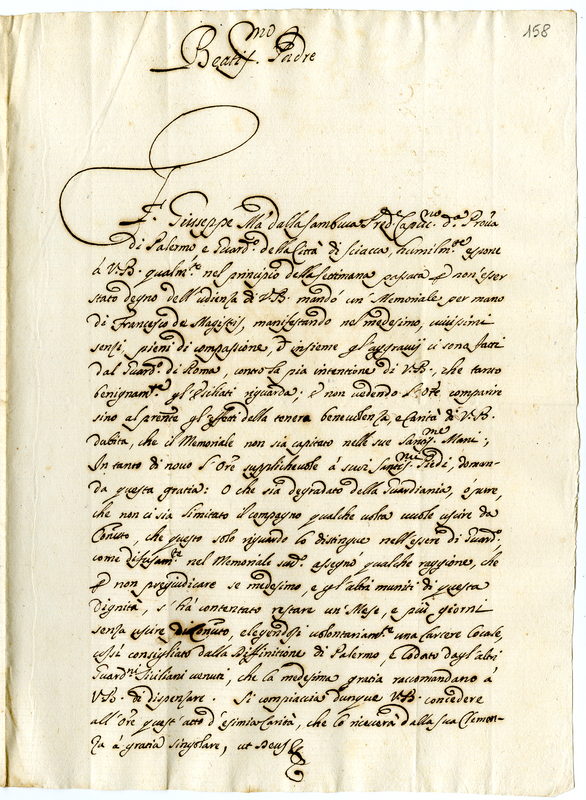 158
Beatis.mo Padre
F. Giuseppe M.a dalla Sambuca Pred.e Capuc.no d.a Prou.a
di Palermo e Guard.o della Città di Sciacca, humilm.te espone
à V.B. qualm.te nel principio della settimana passata ꝑ non esser
stato degno dell'udienza di V.B. mandò un Memoriale per mano
di Francesco de Magistris, manifestando nel medesimo, vivissimi
sensi, pieni di compasione, et insieme gl'aggravij ci sono fatti
dal Guard.o di Roma, contro la pia intentione di V.B., che tanto
benignam.te gl'esiliati riguarda; e non vedendo l'Ore comparire
sino al presente gl'effetti della tenera benevolenza, e Carità di V.B.
dubita, che il Memoriale non sia capitato nelle sue Santis.me Mani;
In tanto di novo l'Ore supplichevole à suoi Santis.mi Piedi, doman-
da questa gratia: O che sia degradato della Guardiania, ò pure,
che non ci sia limitato il compagno qualche volta vuole uscire da
Conv.to, che questo solo riguardo lo distingue nell'essere di Guard.o
come difusam.te nel Memoriale sud.o assegnò qualche raggione, che
ꝑ non pregiudicare se medesimo, e gl'altri muniti di questa
Dignità, s'hà contentato restare un Mese, e più giorni
senza uscire di Conv.to, elegendosi volontariam.te una Carcere locale,
così consigliato dalla Diffinitione di Palermo, e lodato dagl'altri
Guard.ni Siciliani venuti, che la medesima gratia raccomandano à
V.B. di dispensare. Si compiaccia dunque V.B. concedere
all'Ore quest'atto d'esimia Carità, che lo riceverà dalla sua Clemen-
za à gratia singolare, ut Deus